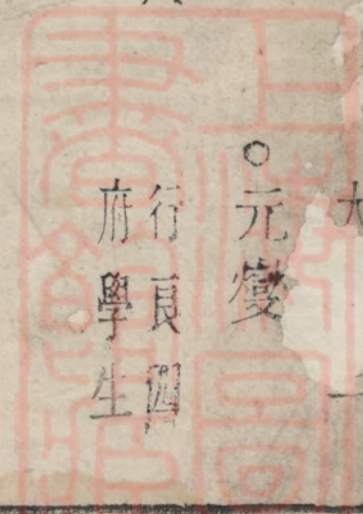 ○元燮
行良四
府學生